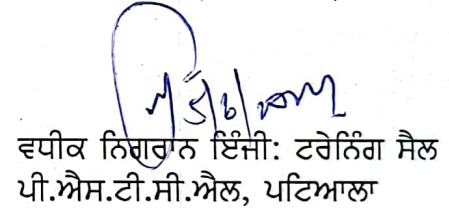 ਵਧੀਕ ਨਿਗਰਾਨ ਇੰਜੀ: ਟਰੇਨਿੰਗ ਸੈਲ
ਪੀ.ਐਸ.ਟੀ.ਸੀ.ਐਲ, ਪਟਿਆਲਾ